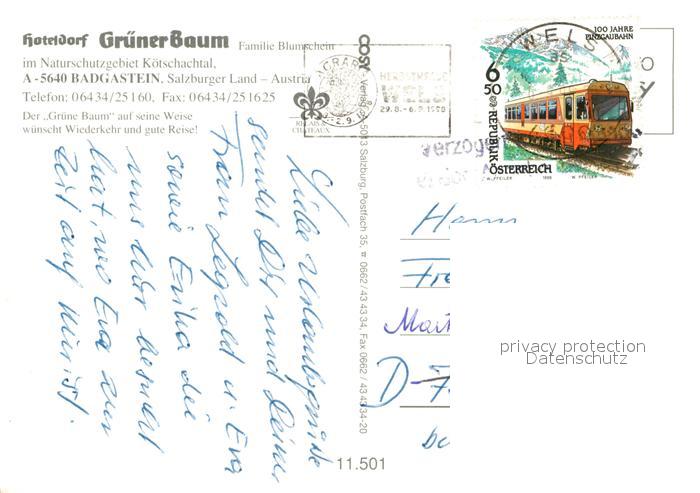 Hoteldorf Grüner Baum Familie Blumschein
im Naturschutzgebiet Kötschachtal,
A - 5640 BADGASTEIN, Salzburger Land – Austria
Telefon: 06434/25160, Fax: 06434/251625
Der „Grüne Baum“ auf seine Weise
wünscht Wiederkehr und gute Reise!
RELAIS &
CHATEAUX
HERBSTMESSE
WELS
29.8.- 6.9.1998
WELS
100 JAHRE
PINZGAUBAHN
6 50
REPUBLIK
ÖSTERREICH
W. PFEILER 1998 W. PFEILER
COSY Verlag 5013 Salzburg, Postfach 35, ☎ 0662/43 43 34, Fax 0662/43 49 34-20
Liebe Urlaubsgrüße
sendet Dir und Deiner
Frau Leopold u. Eva
sowie Erika die
uns hier besucht
hat, wo Eva zur
Zeit auf Kur ist.
Herrn
D-
11.501
privacy protection
Datenschutz